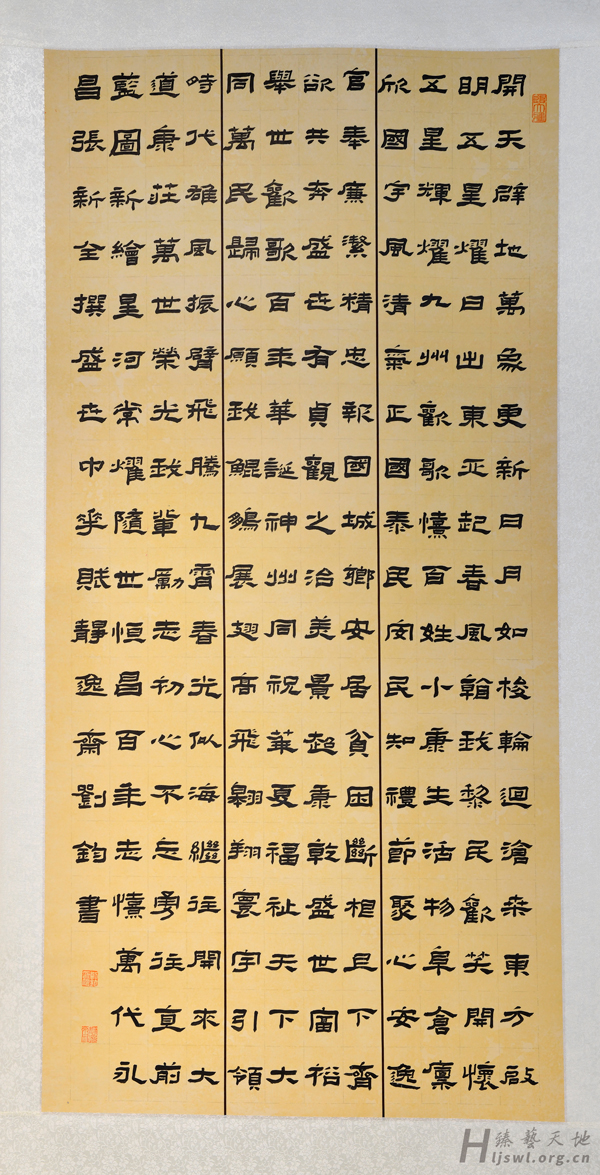 開天辟地萬象更新日月如梭輪迴滄桑東方啟
明五星耀日出東正起春風翰我黎民歡笑開懷
五星輝耀九州歡歌憙百姓小康生活物阜倉凜
欣國宇風清氣正國泰民安民知禮節聚心安逸
官奉廉潔精忠報國城鄉安居貧困斷相且下齊
欲共奔盛世有貞觀之治美景超康乾盛世富裕
舉世歡歌百年華誕神州同祝華夏福祉天下大
同萬民歸心願我鯤鵬展翅高飛翱翔寰宇引領
時代雄風振臂飛騰九霄春光似海繼往開來大
道康莊萬世榮光我輩勵志初心不忘勇往直前
藍圖新繪星河常耀隨世恒昌百年志憙萬代永
昌張新全撰盛世中華賦靜逸齋劉鈞書
臻藝天地
Hljswl.org.cn